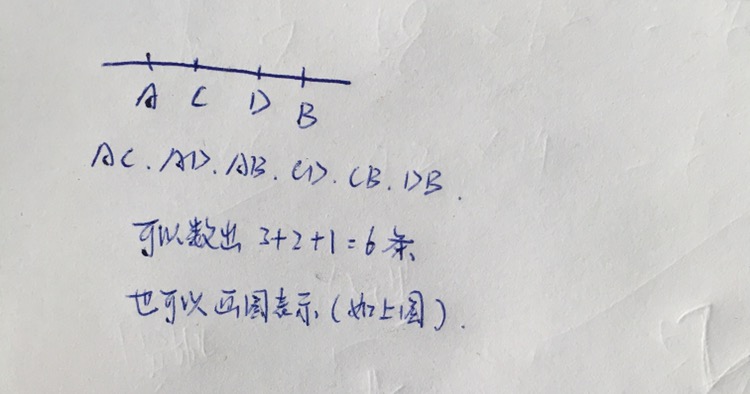 A C D B
AC. AD. AB. CD. CB. DB.
可以数出 3+2+1=6 条
也可以画图表示(如上图).